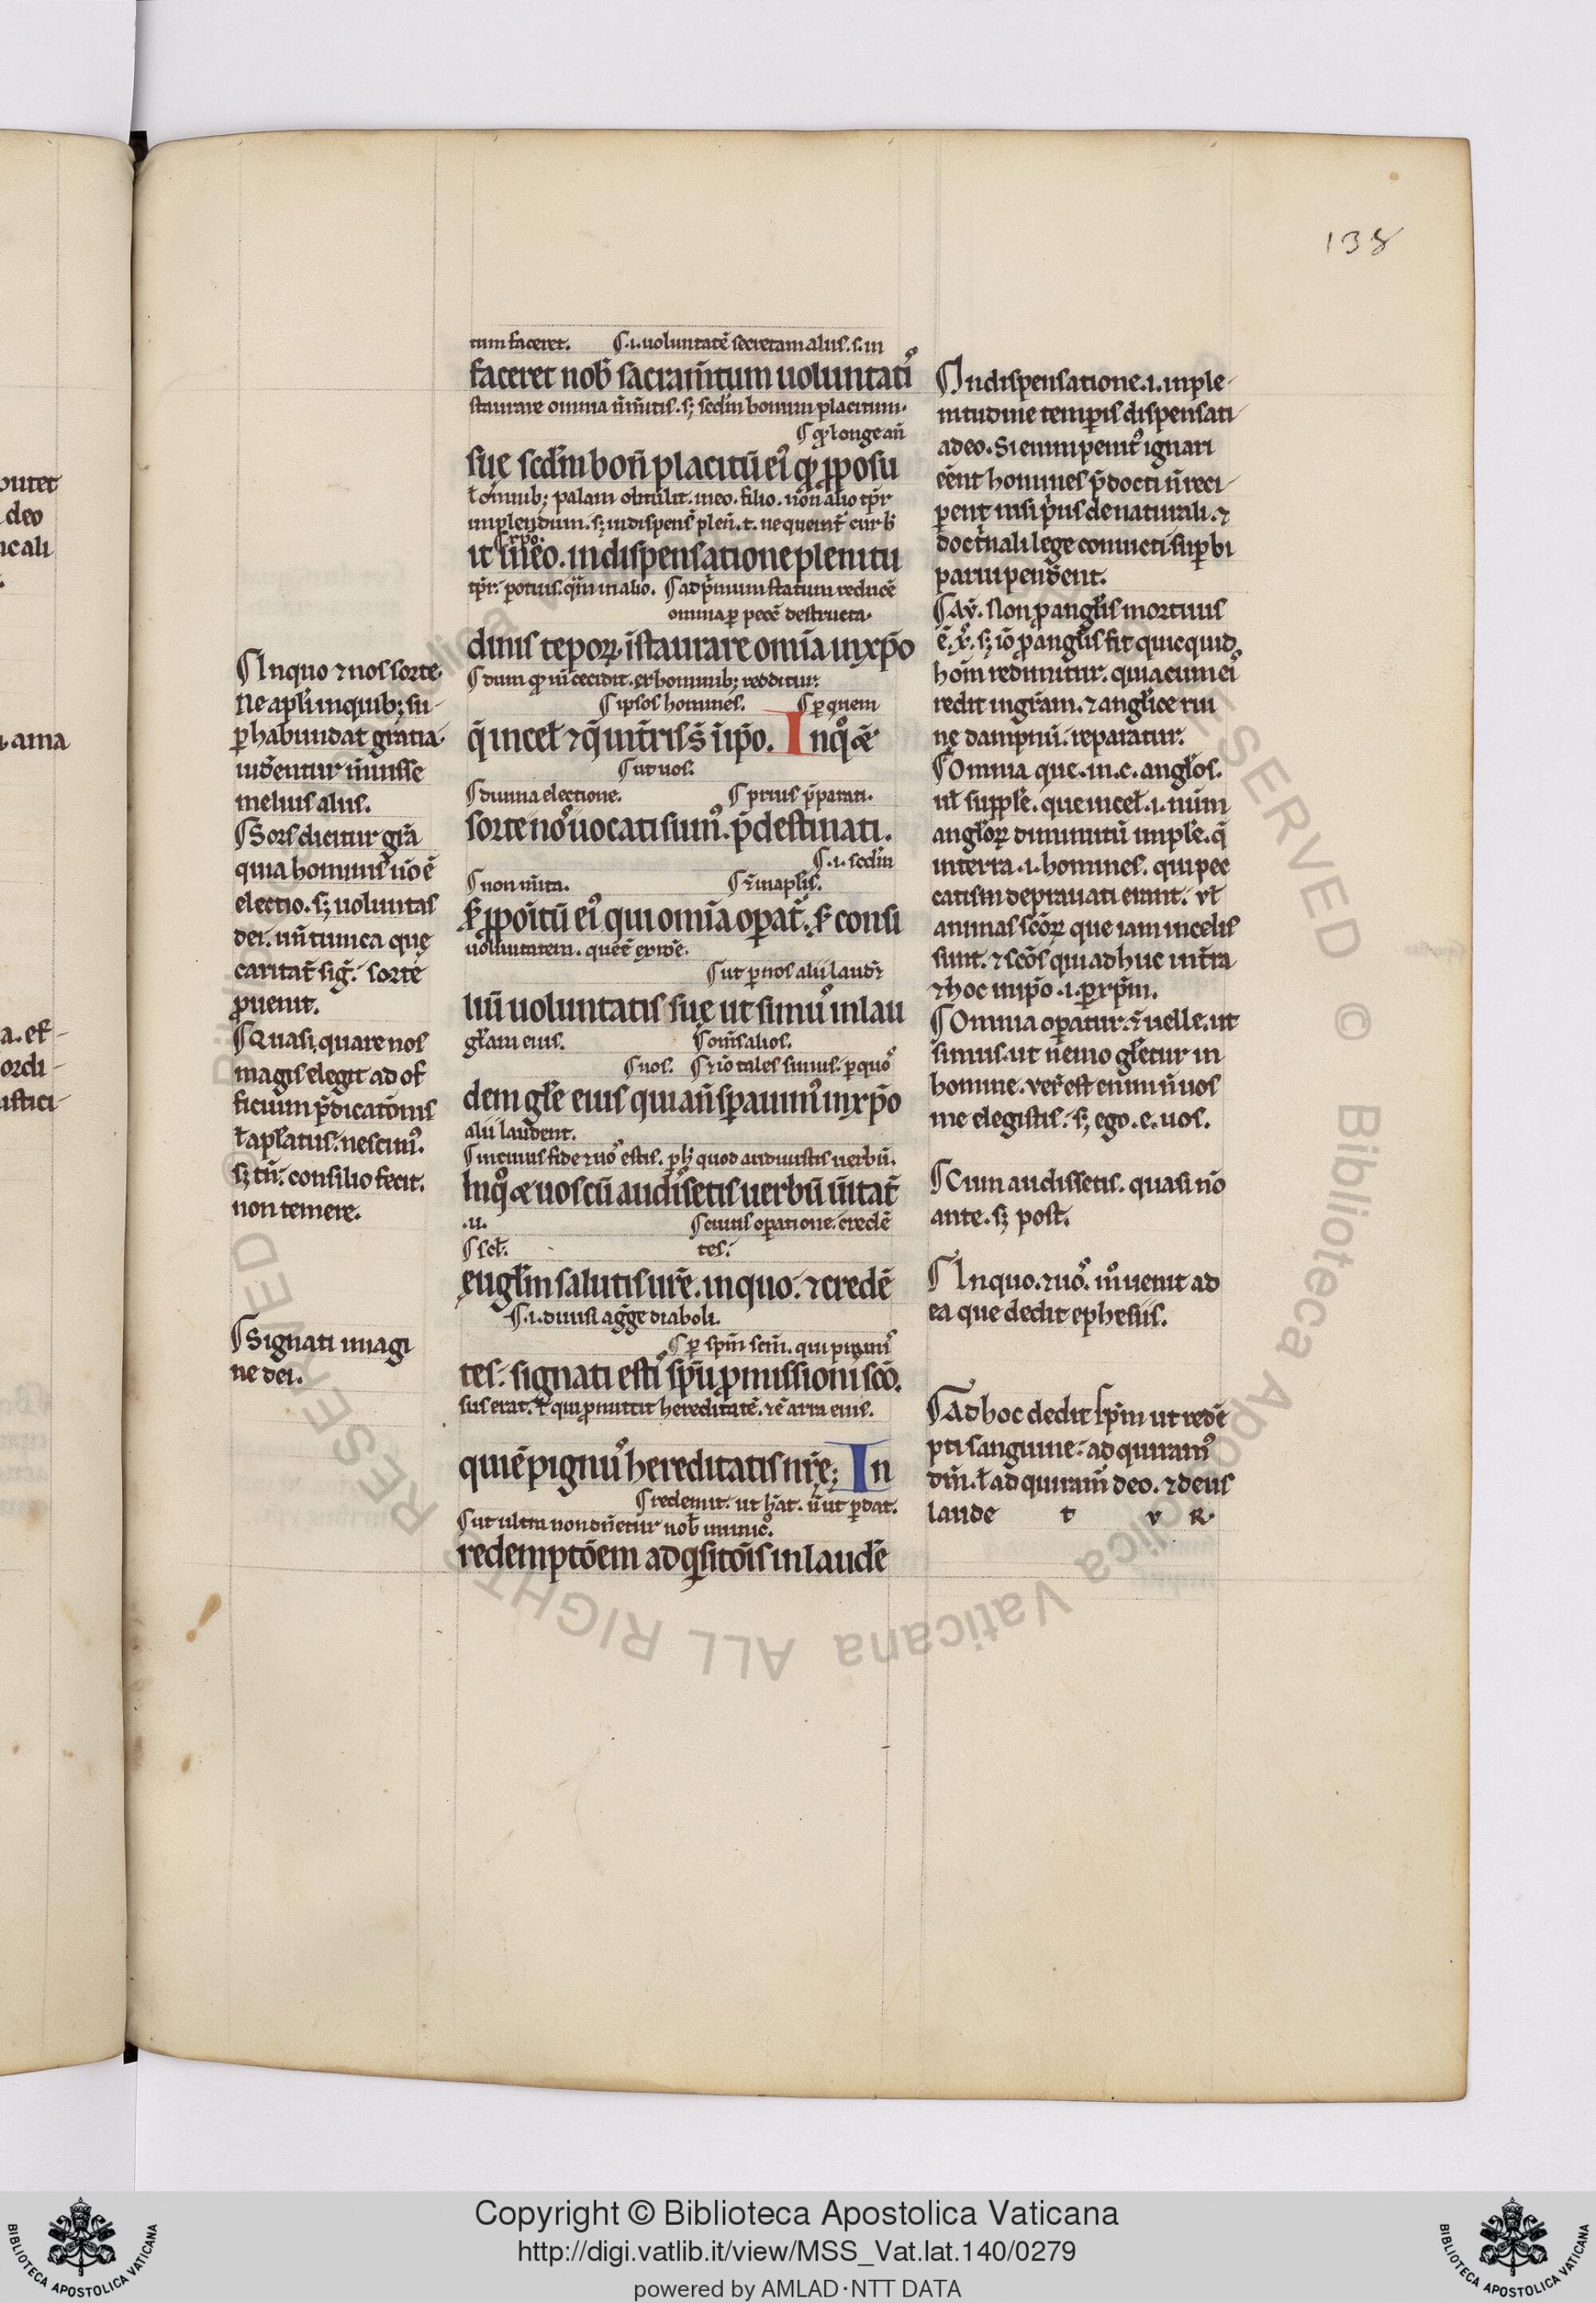 138
tum faceret. ¶.i. uoluntatē secretam aliis. s. in
faceret nob̄ sacram̄tum uoluntatiꝰ
staurare omnia ñ mītis. sꝫ scd̄m bonum placitum.
¶ qđ longe an̄
suę scd̄m bon̄ placitū eiꝰ qđ ꝓposu
ł omnibꝫ palam obtulit. in eo. filio. non alio tp̄r
implendum. sꝫ in dispens̄ plen̄. t. ne
¶ xp̄o.
it in eo. in dispensatione plenitu
tp̄r. potius. qm̄ in alio. ¶ ad p̄mum statum reducē
omnia ꝑ pecc̄ destructa.
dinis tēpoꝝ. īstaurare om̄ia in xp̄o
¶ dum qđ in̄ cecidit. ex hominibꝫ redditur.
¶ ipsos homines. ¶ ꝑ quem
q̄ in cel̄ ⁊ q̄ in t̄ris s̄ in ip̄o. In qͦ &
¶ ut uos.
¶ diuina electione. ¶ prius p̄parati.
sorte noꝰ uocati sumꝰ. p̄destinati.
¶.i. scd̄m
¶ non m̄ita. ¶ ⁊ in ap̄lis.
s̄ ꝓpoītū eiꝰ qui om̄ia opat̄. s̄ consi
uoluntatem. que
¶ ut ꝑ nos alii laud̄t
liū uoluntatis suę ut simꝰ in lau
gl̄iam eius. ¶ om̄s alios.
¶ nos. ¶ ⁊ iō tales simus. ꝑ quoꝰ
dem gl̄e eius qui an̄ spauimꝰ in xp̄o
alii laudent.
¶ in cuius fide ⁊ uoꝰ estis. ꝑ h̄ quod audiuistis uerbū.
In qͦ & uos cū audissetis uerbū u̅itat̄
.u. ¶ cuius opatione. credē
¶ scł. tes.
euḡlm salutis ur̄e. in quo. ⁊ credē
¶.i. diuisi agḡe diaboli.
¶ ꝑ sp̄m scm̄. qui
tes. signati estis sp̄u ꝓmissionis scō.
sus erat. ł qui ꝓmittit hereditatē. ⁊ ē arra eius.
qui ē pignus hereditatis nr̄e. In
¶ redemit. ut h̄at. ñ ut ꝑdat.
¶ ut ultra non dn̄etur nob̄ inimicꝰ.
redemptōem adq̄sitōis in laudē
¶ In quo ⁊ nos sorte.
Ne apl̄i in quibꝫ su-
ꝑhabundat gratia.
uid̄entur in̄uisse
melius aliis.
¶ Sors dicitur gr̄a
quia hominis nō ē
electio. sꝫ uoluntas
dei. un̄ tunica quę
caritat̄ sig̅. sorte
ꝓuenit.
¶ Quasi, quare nos
magis elegit ad of
ficium p̄dicatōnis
ł apl̄atus. nescimꝰ.
sꝫ tn̄. consilio fecit.
non temere.
¶ Signati imagi
ne dei.
¶ In dispensatione .i. in ple-
nitudine temporis dispensati
a deo. Si enim penitꝰ ignari
eēnt homines p̄docti n̄ reci-
perent nisi p̄us de naturali. ⁊
doct̄nali lege conuicti. supbi
paruipend̄ent.
¶ Aḡ. Non ꝓ angelis mortuus
ē. x̄. sꝫ iō ꝓ angl̄is fit quicquid
hom̄ redimitur. quia cum eiꝰ
redit in gr̄am. ⁊ angl̄ice rui
nę dampnū. reparatur.
¶ Omnia que. in. c. angl̄os.
ul̄ supple. que in cel̄ .i. num̄
angl̄oꝝ diminutū imple. q̄
in terra .i. homines. qui pec
catis in deprauati erant. vł
animas sc̄oꝝ que iam in celis
sunt. ⁊ sc̄os qui adhuc in t̄ra
⁊ hoc in ip̄o .i. ꝑ xp̄m.
¶ Omnia operatur. ⁊ uelle. ut
simus. ut nemo gl̄etur in
homine. uer̄ est enim n̄ uos
me elegistis. sꝫ ego. e. uos.
¶ Cum audissetis. quasi nō
ante. sꝫ post.
¶ In quo. ⁊ uoꝰ. mͦ uenit ad
ea que dedit ephesiis.
¶ Ad hoc dedit sp̄m ut redē
pti sanguine. adquiramꝰ
dm̄. ł adquiram̄ deo. ⁊ deus
laude t v R.
Copyright © Biblioteca Apostolica Vaticana
http://digi.vatlib.it/view/MSS_Vat.lat.140/0279
powered by AMLAD·NTT DATA
BIBLIOTECA APOSTOLICA VATICANA
BIBLIOTECA APOSTOLICA VATICANA